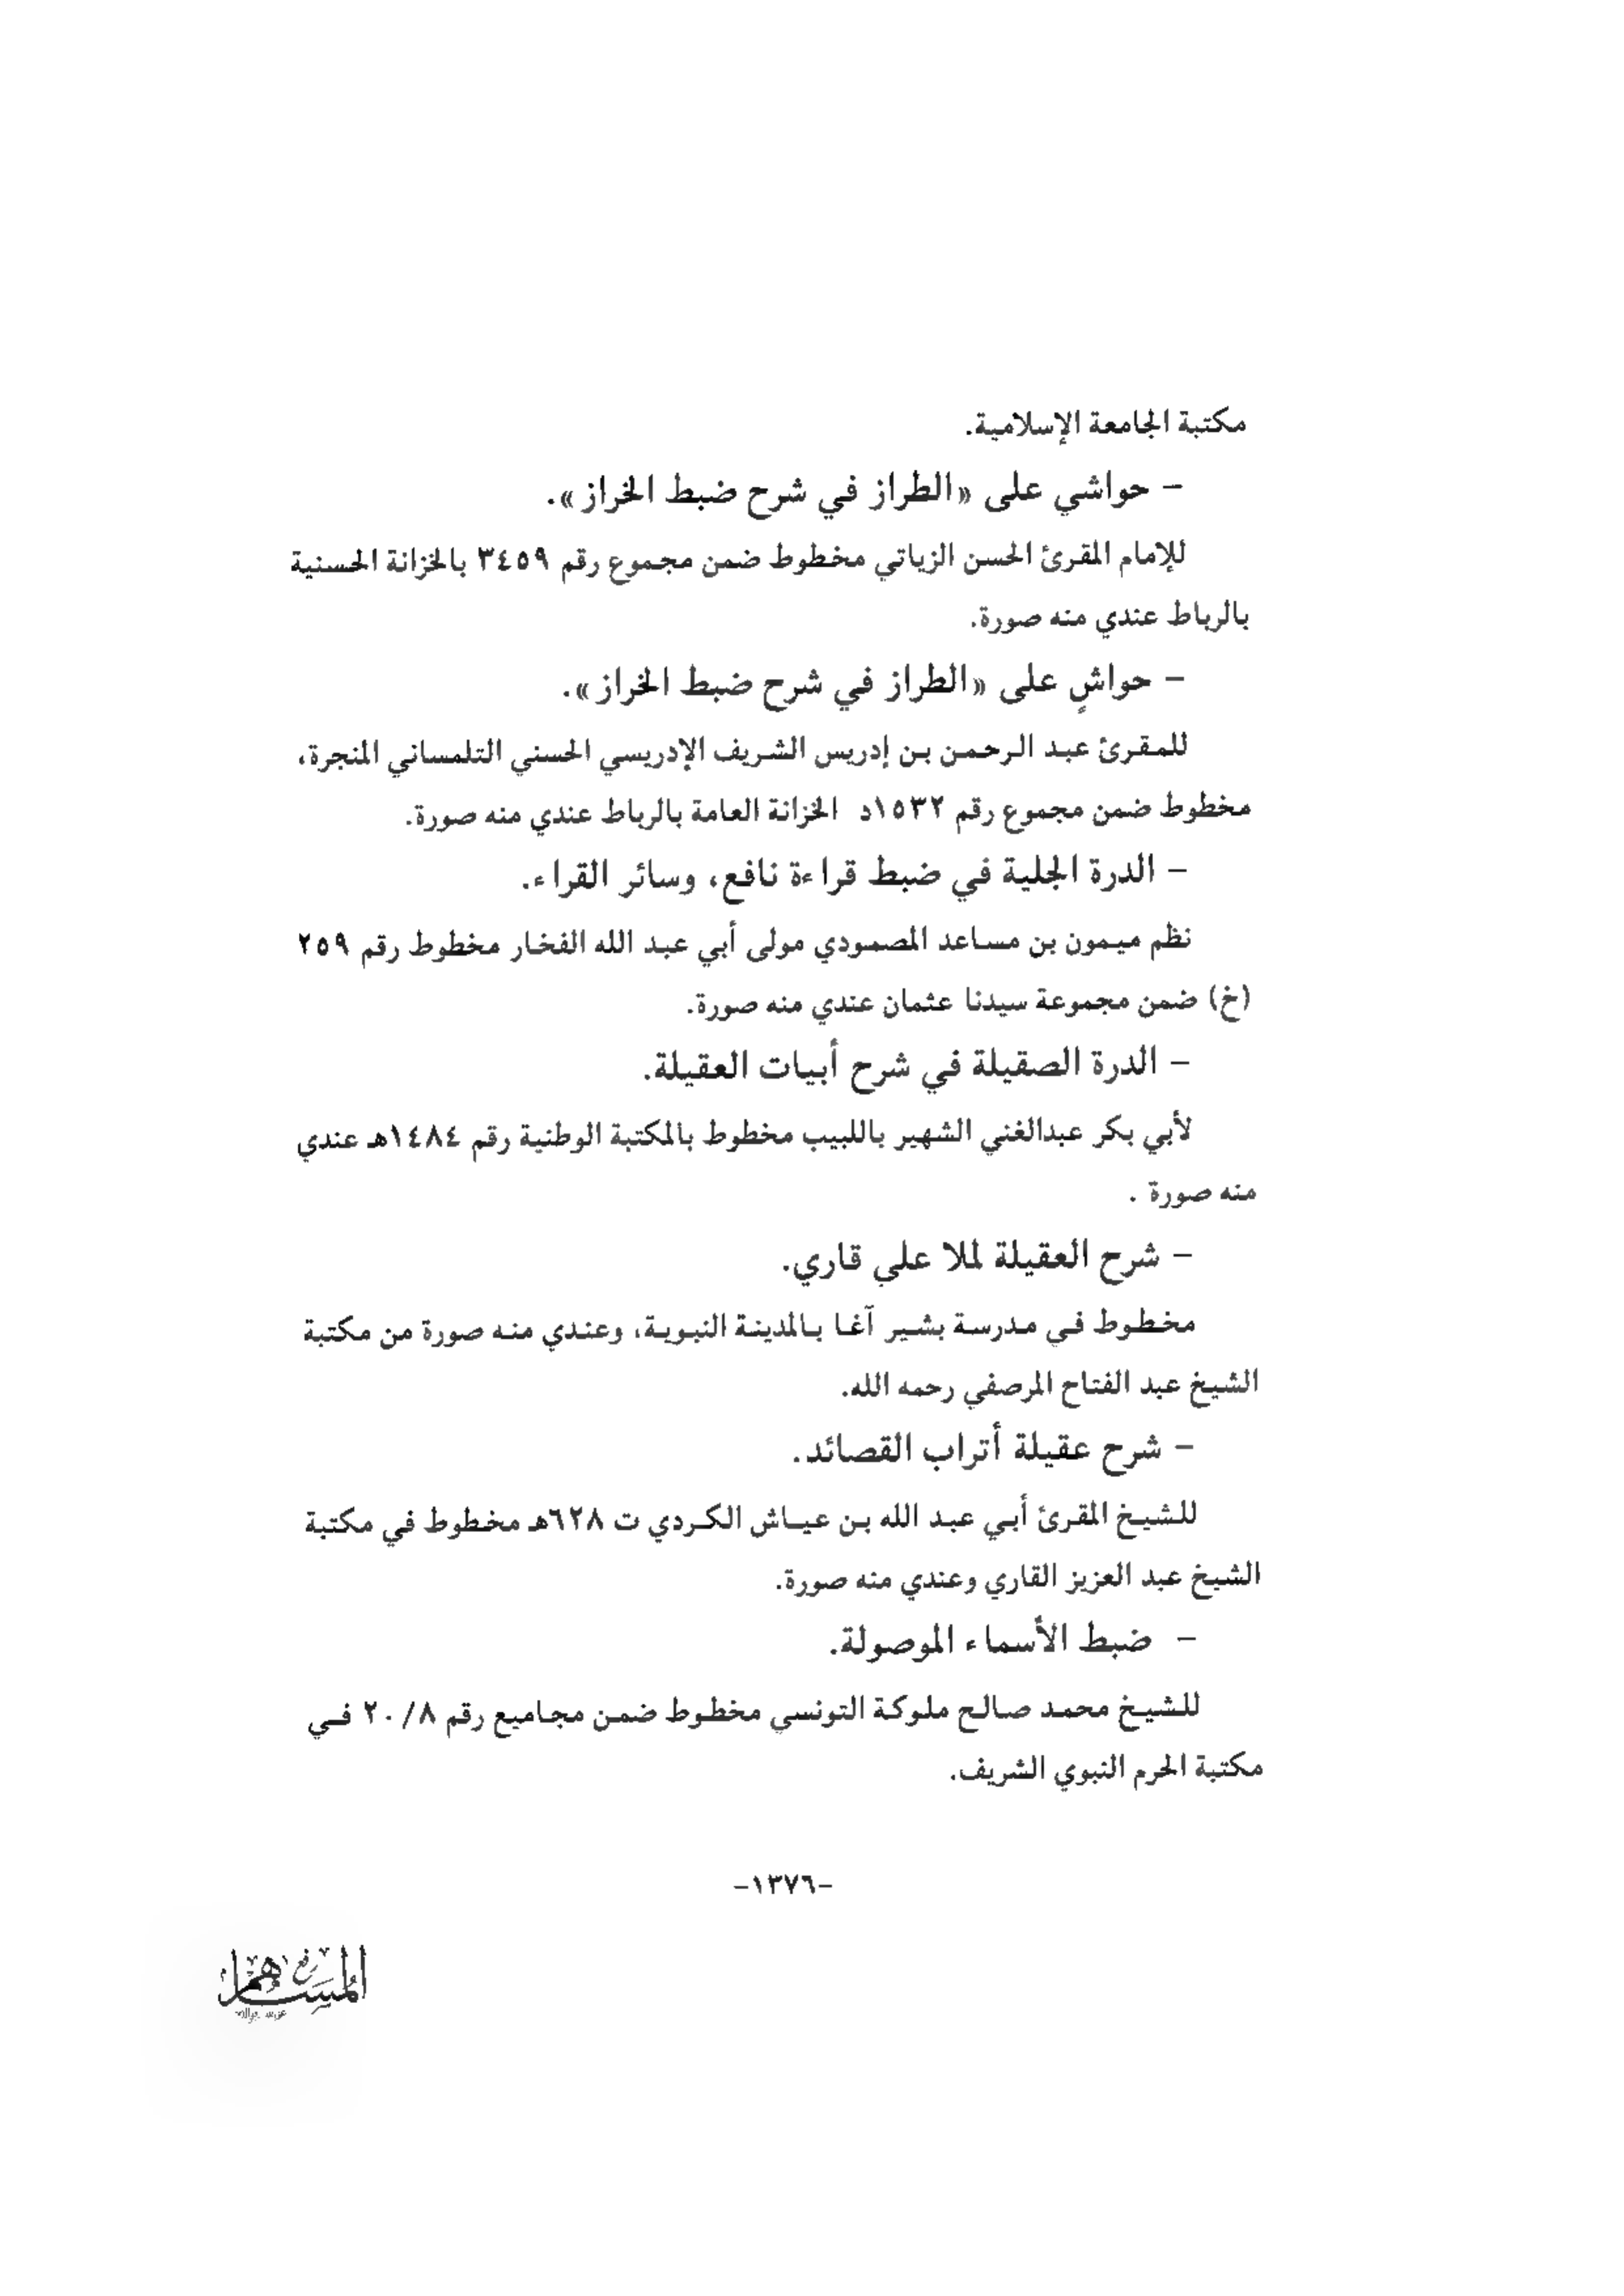 مكتبة الجامعة الإسلامية.
– حواشي على «الطراز في شرح ضبط الخراز».
للإمام المقرئ الحسن الزياتي مخطوط ضمن مجموع رقم ٣٤٥٩ بالخزانة الحسنية
بالرباط عندي منه صورة.
– حواشٍ على «الطراز في شرح ضبط الخراز».
للمقرئ عبد الرحمن بن إدريس الشريف الإدريسي الحسني التلمساني المنجرة،
مخطوط ضمن مجموع رقم ١٥٣٢د الخزانة العامة بالرباط عندي منه صورة.
– الدرة الجلية في ضبط قراءة نافع، وسائر القراء.
نظم ميمون بن مساعد المصمودي مولى أبي عبد الله الفخار مخطوط رقم ٢٥٩
(خ) ضمن مجموعة سيدنا عثمان عندي منه صورة.
– الدرة الصقيلة في شرح أبيات العقيلة.
لأبي بكر عبدالغني الشهير باللبيب مخطوط بالمكتبة الوطنية رقم ١٤٨٤هـ عندي
منه صورة .
– شرح العقيلة لملا علي قاري.
مخطوط في مدرسة بشير آغا بالمدينة النبوية، وعندي منه صورة من مكتبة
الشيخ عبد الفتاح المرصفي رحمه الله.
– شرح عقيلة أتراب القصائد.
للشيخ المقرئ أبي عبد الله بن عياش الكردي ت ٦٢٨هـ مخطوط في مكتبة
الشيخ عبد العزيز القاري وعندي منه صورة.
– ضبط الأسماء الموصولة.
للشيخ محمد صالح ملوكة التونسي مخطوط ضمن مجاميع رقم ٢٠/٨ في
مكتبة الحرم النبوي الشريف.
–١٣٧٦–